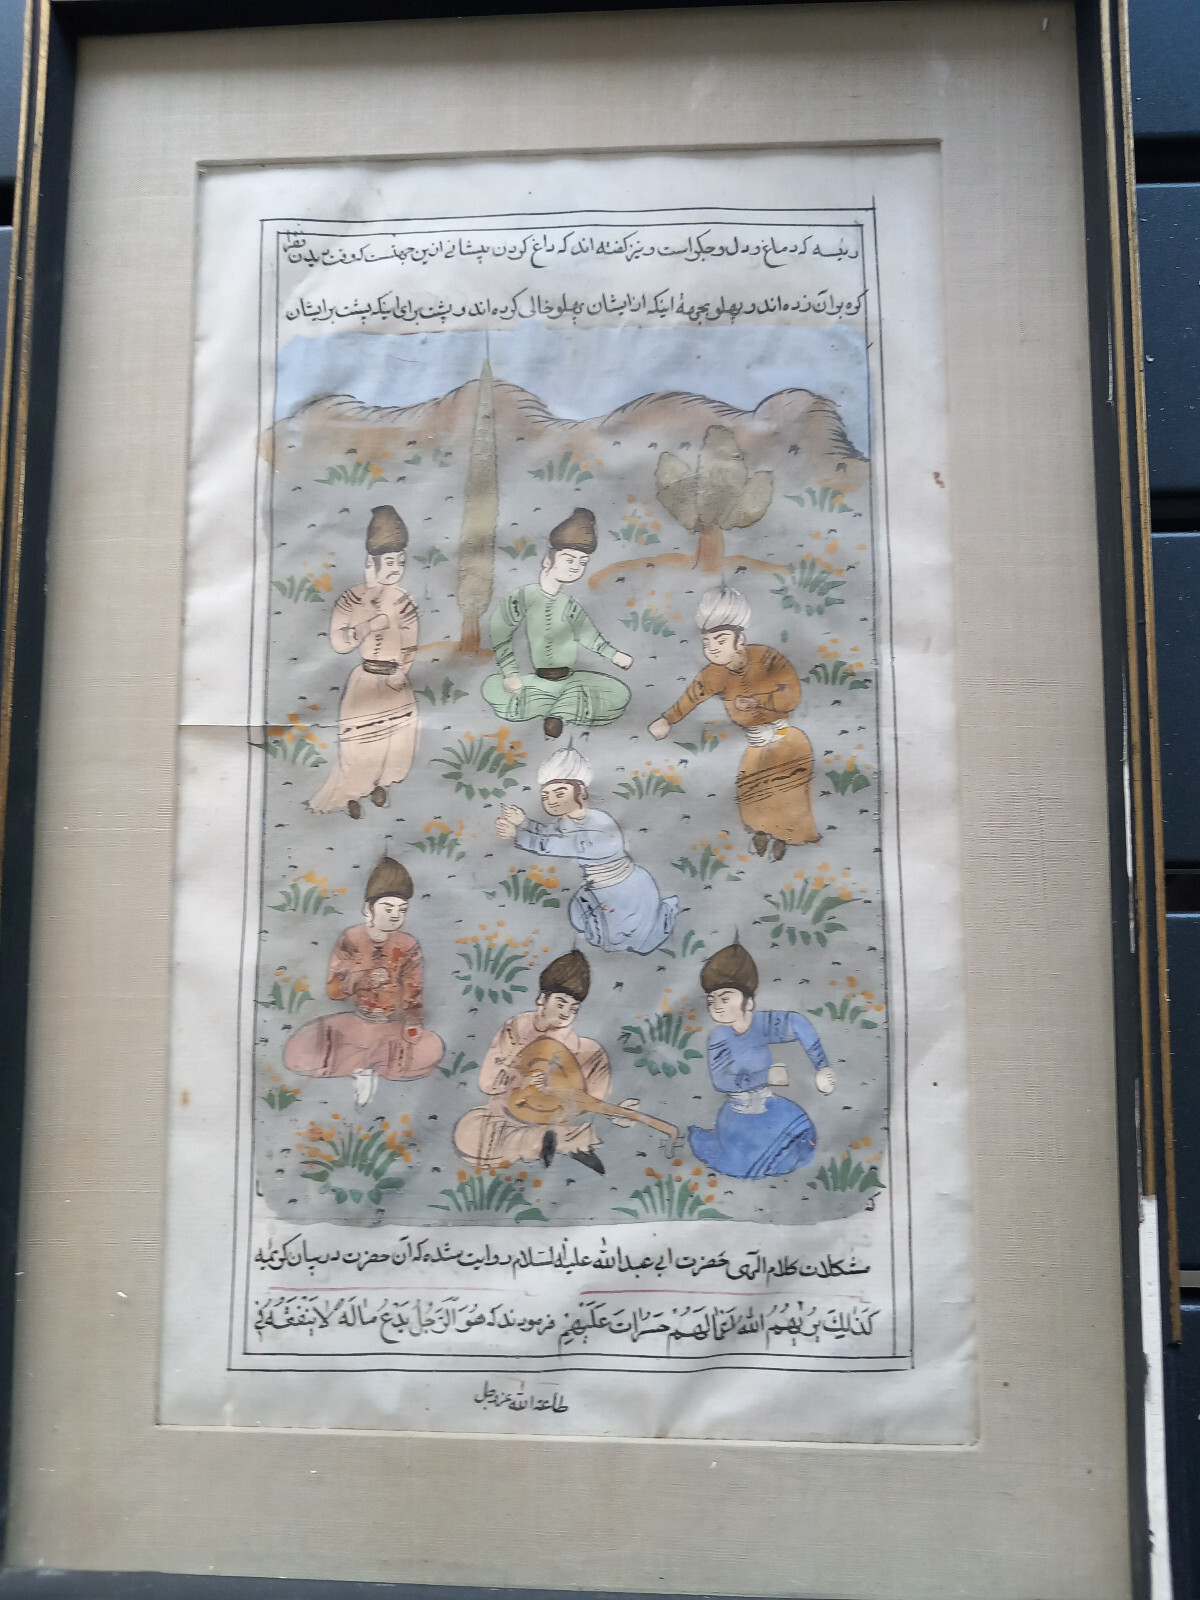 رئیسه که دماغ و دل و جگر است و نیز گفته اند که داغ کردن پیشانی ازین جهتست که وقتی بدن فقرا
کره بر آن زده اند و پهلو بجههٔ اینکه از ایشان پهلو خالی کرده اند و پشت برای اینکه پشت بر ایشان
مشکلات کلام الهی حضرت ابی عبدالله علیه السلام روایت شده که آن حضرت در بیان کریمه
كَذٰلِكَ يُرِيهُمُ اللّٰهُ اَعْمٰالَهُمْ حَسَرٰاتٍ عَلَيْهِمْ فرمودند که هُوَ الرَّجُلُ يَدَعُ مٰالَهُ لاٰ يُنْفِقُهُ فِي
طاعة الله عزوجل